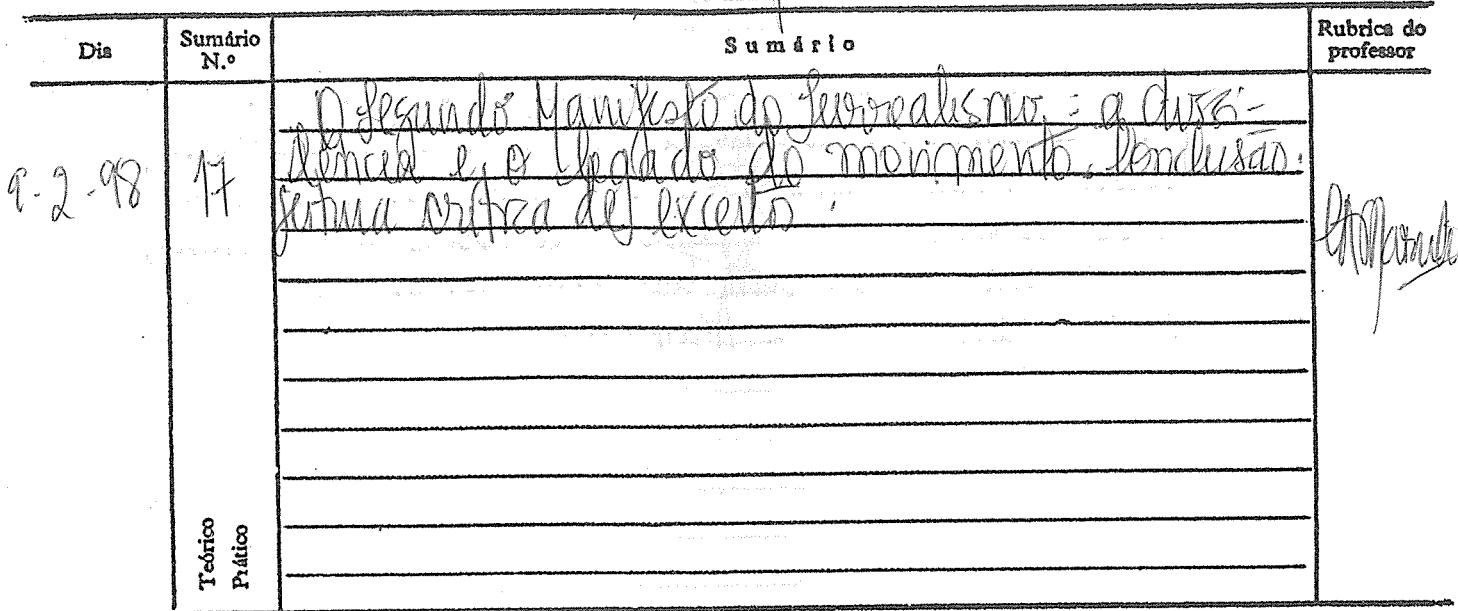 Dia Sumário N.º Sumário Rubrica do professor
9-2-98 17 O Segundo Manifesto do Surrealismo: a dissi-
dência e o legado do movimento. Conclusão.
Leitura crítica de excertos.
Teórico
Prático